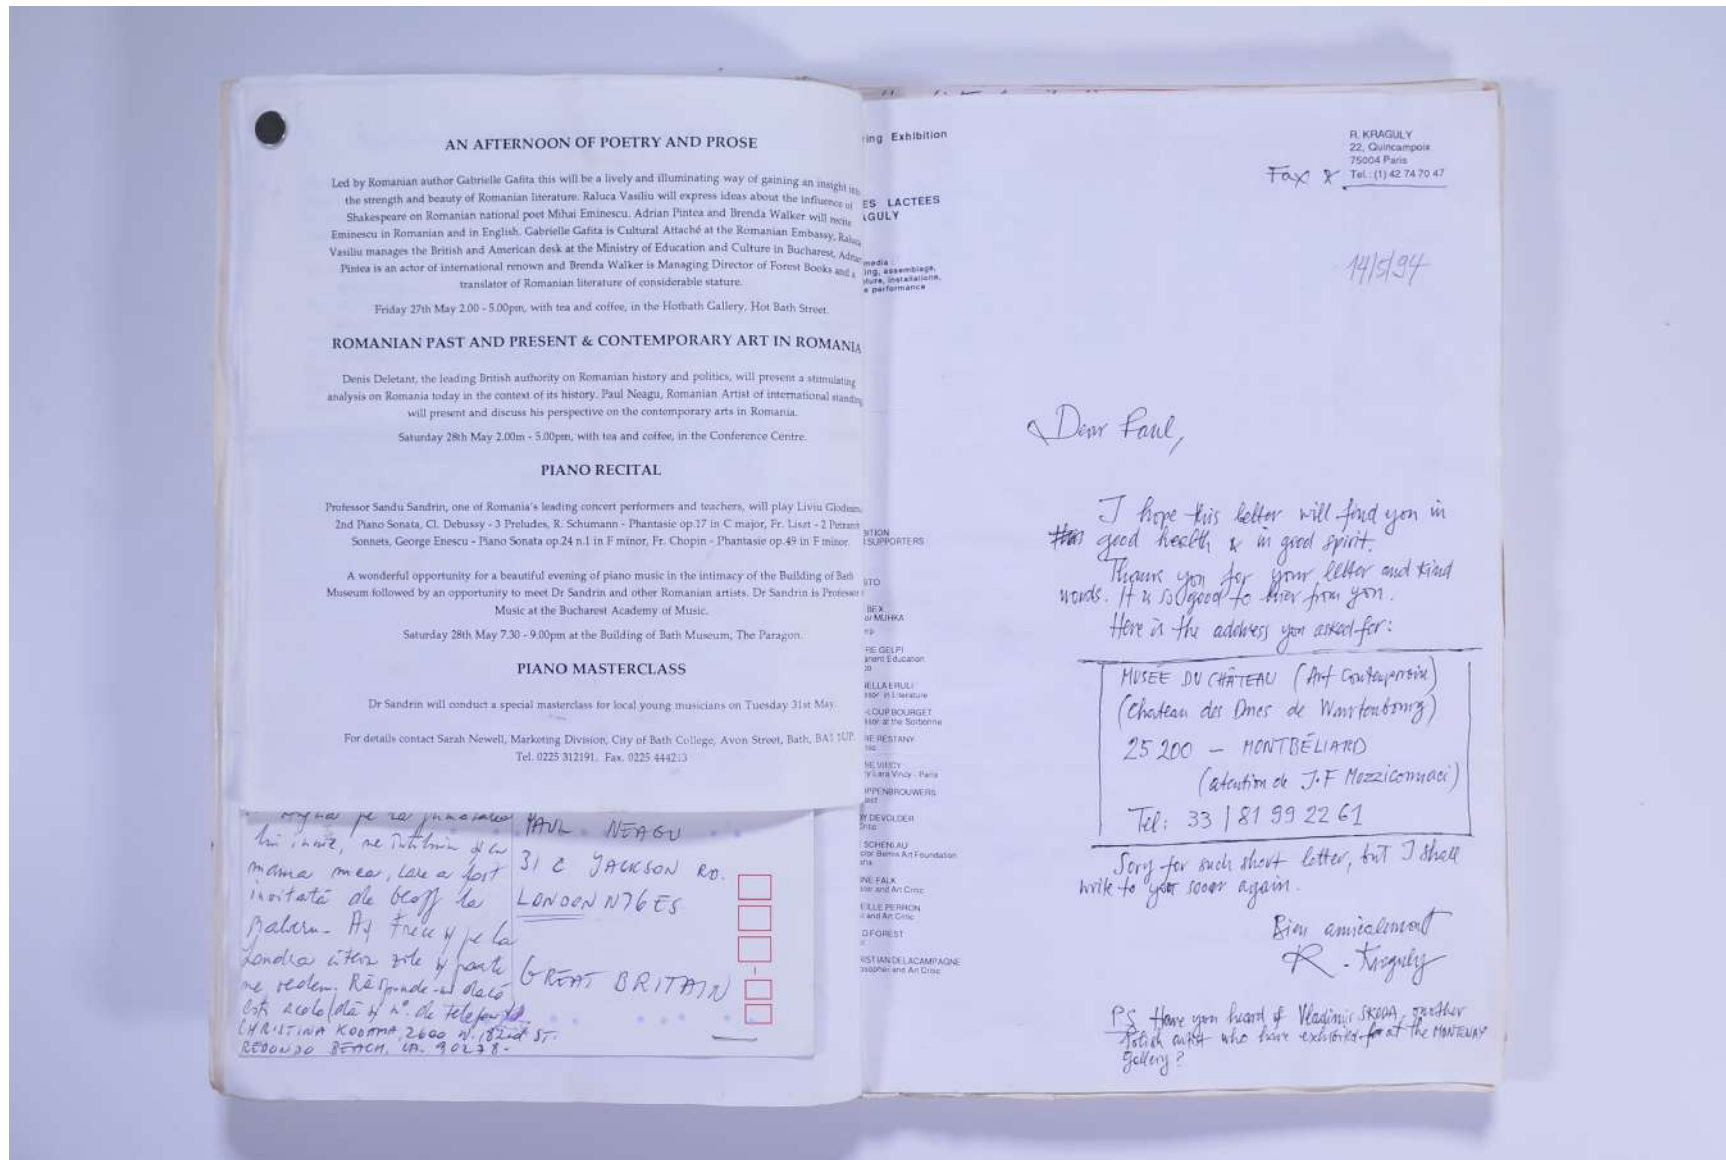 AN AFTERNOON OF POETRY AND PROSE
Led by Romanian author Gabrielle Gafita this will be a lively and illuminating way of gaining an insight into
the strength and beauty of Romanian literature. Raluca Vasiliu will express ideas about the influence of
Shakespeare on Romanian national poet Mihai Eminescu. Adrian Pintea and Brenda Walker will recite
Eminescu in Romanian and in English. Gabrielle Gafita is Cultural Attaché at the Romanian Embassy, Raluca
Vasiliu manages the British and American desk at the Ministry of Education and Culture in Bucharest, Adrian
Pintea is an actor of international renown and Brenda Walker is Managing Director of Forest Books and a
translator of Romanian literature of considerable stature.
Friday 27th May 2.00 - 5.00pm, with tea and coffee, in the Hotbath Gallery, Hot Bath Street.
ROMANIAN PAST AND PRESENT & CONTEMPORARY ART IN ROMANIA
Denis Deletant, the leading British authority on Romanian history and politics, will present a stimulating
analysis on Romania today in the context of its history. Paul Neagu, Romanian Artist of international standing
will present and discuss his perspective on the contemporary arts in Romania.
Saturday 28th May 2.00m - 5.00pm, with tea and coffee, in the Conference Centre.
PIANO RECITAL
Professor Sandu Sandrin, one of Romania's leading concert performers and teachers, will play Liviu
2nd Piano Sonata, Cl. Debussy - 3 Preludes, R. Schumann - Phantasie op.17 in C major, Fr. Liszt - 2
Sonnets, George Enescu - Piano Sonata op.24 n.1 in F minor, Fr. Chopin - Phantasie op.49 in F minor.
A wonderful opportunity for a beautiful evening of piano music in the intimacy of the Building of Bath
Museum followed by an opportunity to meet Dr Sandrin and other Romanian artists. Dr Sandrin is Professor
Music at the Bucharest Academy of Music.
Saturday 28th May 7.30 - 9.00pm at the Building of Bath Museum, The Paragon.
PIANO MASTERCLASS
Dr Sandrin will conduct a special masterclass for local young musicians on Tuesday 31st May.
For details contact Sarah Newell, Marketing Division, City of Bath College, Avon Street, Bath, BA1 1UP.
Tel. 0225 312191. Fax. 0225 444213
lui iunie, ne întâlnim și cu
mama mea, care a fost
invitată de Geoff la
și pe la
Londra câteva zile și poate
ne vedem. Răspunde-mi dacă
ești acolo/dă și nº. de telefon
CHRISTINA KODAMA, 2600 N. 182nd ST.
REDONDO BEACH, CA. 90278-
PAUL NEAGU
31 C JACKSON RD.
LONDON N76ES
GREAT BRITAIN
ring Exhibition
ES LACTEES
AGULY
media
ing, assemblage,
ture, installations,
e performance
BITION
SUPPORTERS
STO
BEX
or MUHKA
RE GELPI
anent Education
NELLA ERULI
ssor in Literature
-LOUP BOURGET
ssor at the Sorbonne
RE RESTANY
NE VINCY
y Lara Vincy - Paris
PPENBROUWERS
Y DEVOLDER
SCHENLAU
ctor Bemis Art Foundation
NE FALK
and Art Critic
EILLE PERRON
and Art Critic
D FOREST
RISTIAN DELACAMPAGNE
osopher and Art Critic
R. KRAGULY
22, Quincampoix
75004 Paris
Fax & Tel.: (1) 42 74 70 47
14/5/94
Dear Paul,
I hope this letter will find you in
good health & in good spirit.
Thanks you for your letter and kind
words. It is so good to hier from you.
Here is the address you asked for:
MUSÉE DU CHÂTEAU (Art Contemporain)
(Chateau des Ducs de Wurtenbourg)
25 200 - MONTBÉLIARD
(atention de J.F Mozziconnaci)
Tel: 33 / 81 99 22 61
Sory for such short letter, but I shall
write to you sooner again.
Bien amicalement
R. Kraguly
PS Have you heard of Vladimir SKODA, another
Polish artist who have exhibited at the MONTENAY
Gallery?